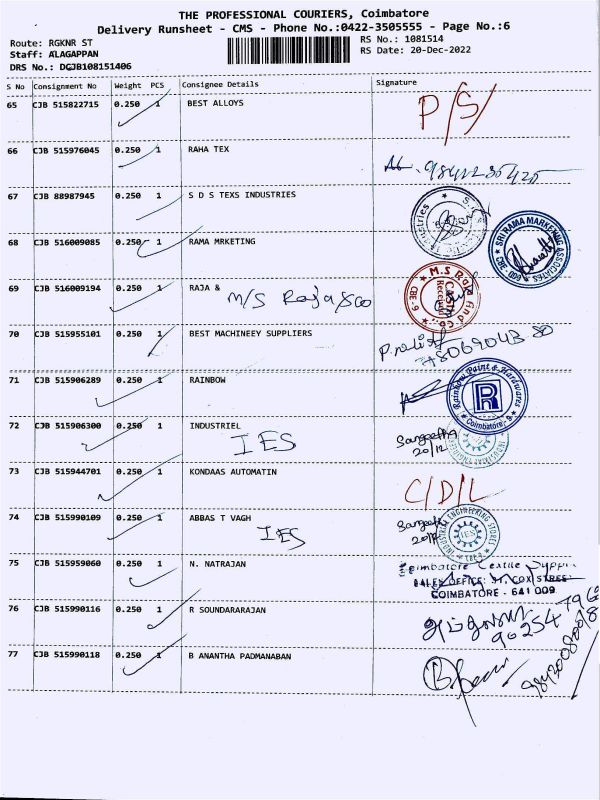 THE PROFESSIONAL COURIERS, Coimbatore
Delivery Runsheet - CMS - Phone No.:0422-3505555 - Page No.:6
Route: RGKNR ST
RS No.: 1081514
Staff: ALAGAPPAN
RS Date: 20-Dec-2022
DRS No.: DGJB108151406
S No Consignment No Weight PCS Consignee Details Signature
65 CJB 515822715 0.250 1 BEST ALLOYS P/S/
66 CJB 515976045 0.250 1 RAHA TEX
67 CJB 88987945 0.250 1 S D S TEXS INDUSTRIES
68 CJB 516009085 0.250 1 RAMA MRKETING
SRI RAMA MARKETING ASSOCIATES
CBE-009
69 CJB 516009194 0.250 1 RAJA & M/S Raja & co
M.S Raja And Co
CBE-6
70 CJB 515955101 0.250 1 BEST MACHINEEY SUPPLIERS
71 CJB 515906289 0.250 1 RAINBOW
Rainbow Paint & Hardwares
R
Coimbatore
72 CJB 515906300 0.250 1 INDUSTRIEL IES Sangeetha
20/12
73 CJB 515944701 0.250 1 KONDAAS AUTOMATIN C/D/L
74 CJB 515990109 0.250 1 ABBAS T VAGH IES Sangeetha
INDUSTRIAL ENGINEERING STORES
IES
75 CJB 515959060 0.250 1 N. NATRAJAN Coimbatore Textile
SALES OFFICE: 37, COX STREET
COIMBATORE - 641 009
76 CJB 515990116 0.250 1 R SOUNDARARAJAN
77 CJB 515990118 0.250 1 B ANANTHA PADMANABAN